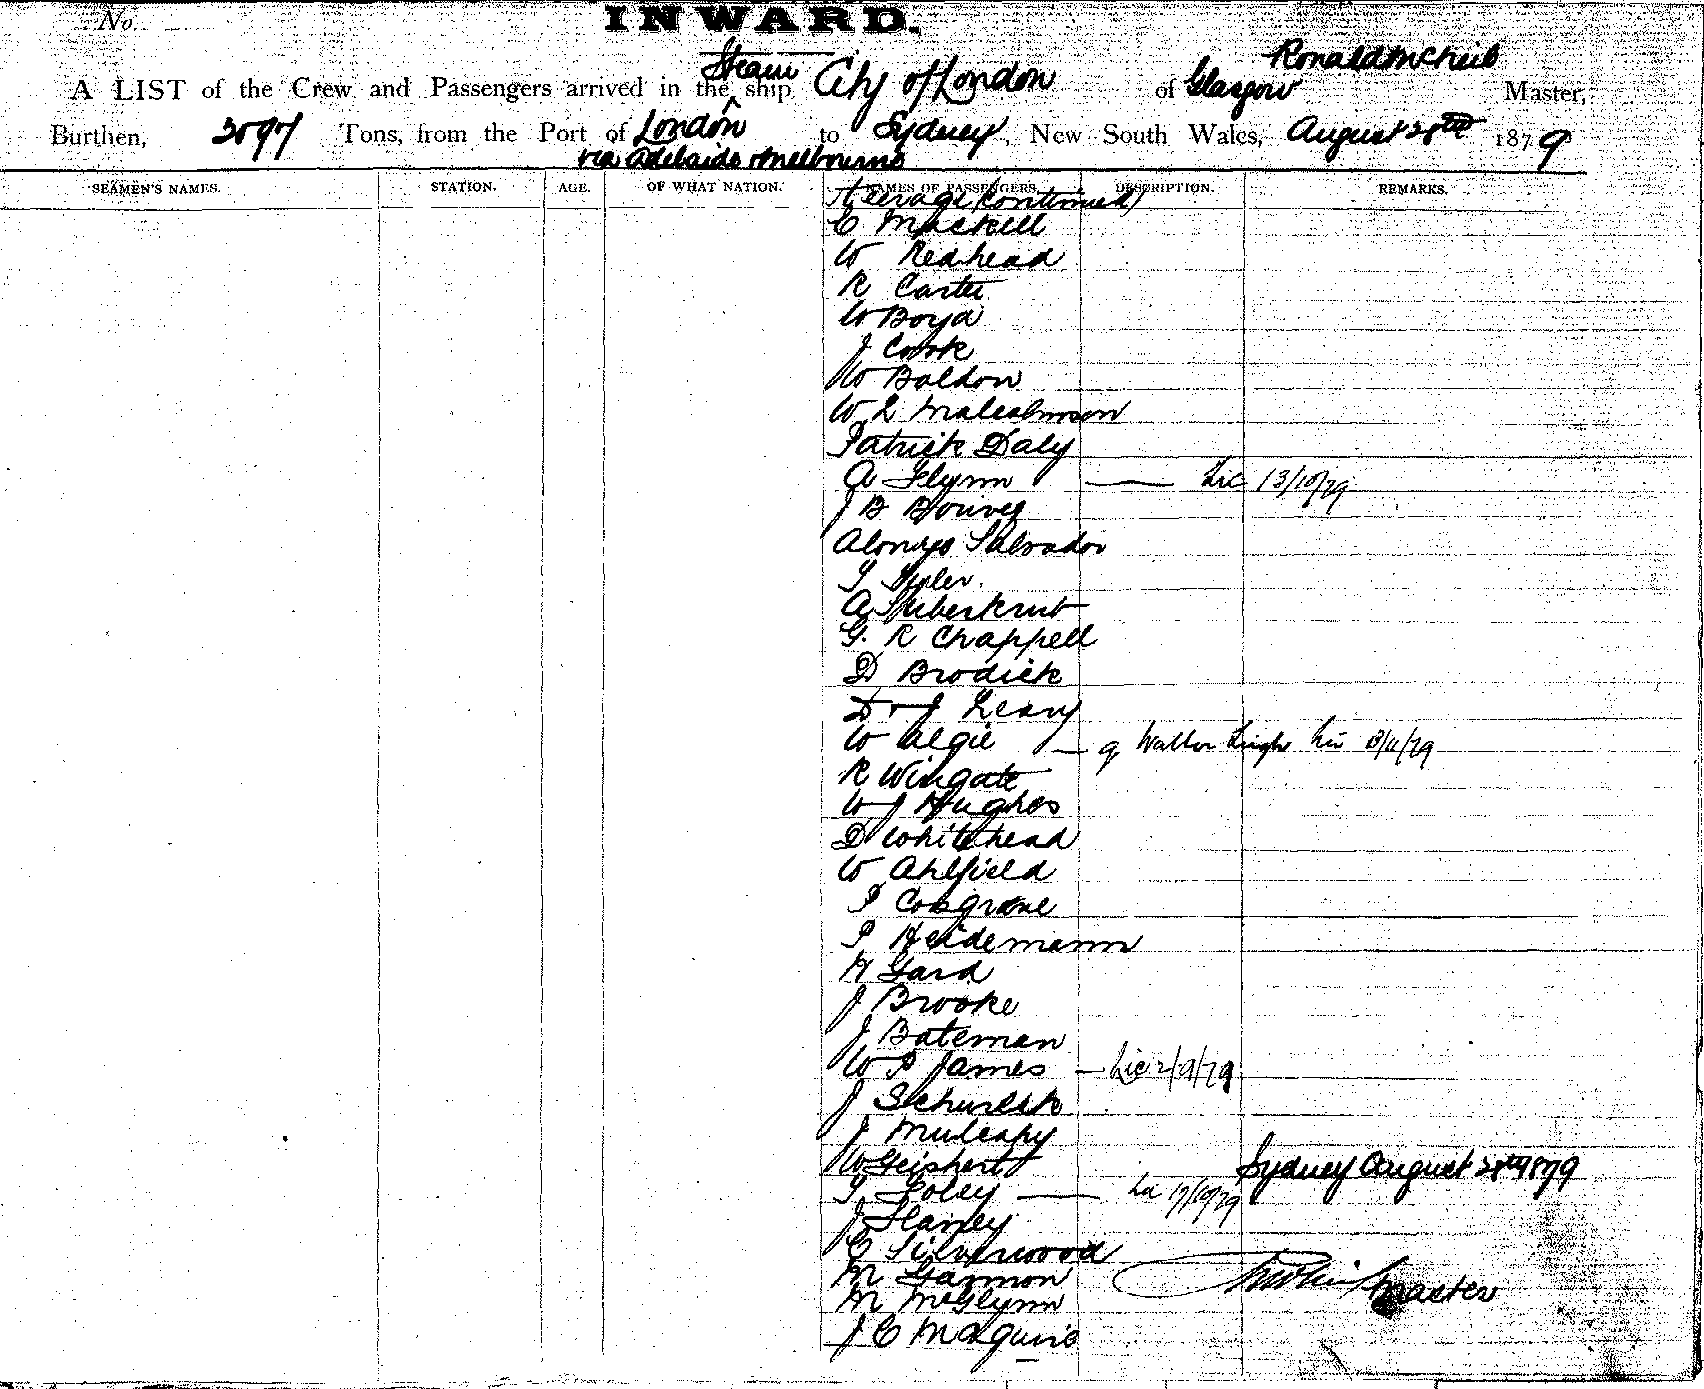 No.
INWARD.
A LIST of the Crew and Passengers arrived in the Steam ship City of London of Glasgow Ronald McNeil Master,
Burthen, 3097 Tons, from the Port of London to Sydney, New South Wales, August 28th 1879
via Adelaide & Melbourne
SEAMEN'S NAMES. STATION. AGE. OF WHAT NATION. NAMES OF PASSENGERS. DESCRIPTION. REMARKS.
Steerage (continued)
C Maskell
W Redhead
R Carter
W Boyd
J Cook
W Baldon
W L Malcolmson
Patrick Daly
A Flynn — Lic 13/10/79
J B
Salvador
A
G. R Chappell
D Brodick
D & J Leary
W Algie —
R Wingate
W J Hughes
D Whitehead
W Ahlfield
P Cosgrove
P Heidemann
H Gard
J Brooke
J Bateman
W P James — Lic 2/9/79
J
J Mulcahy
W
T Foley —
J Slaney
C Silverwood
Sydney August 28th 1879
M Gannon
M McGlynn
Master
J C Maguire